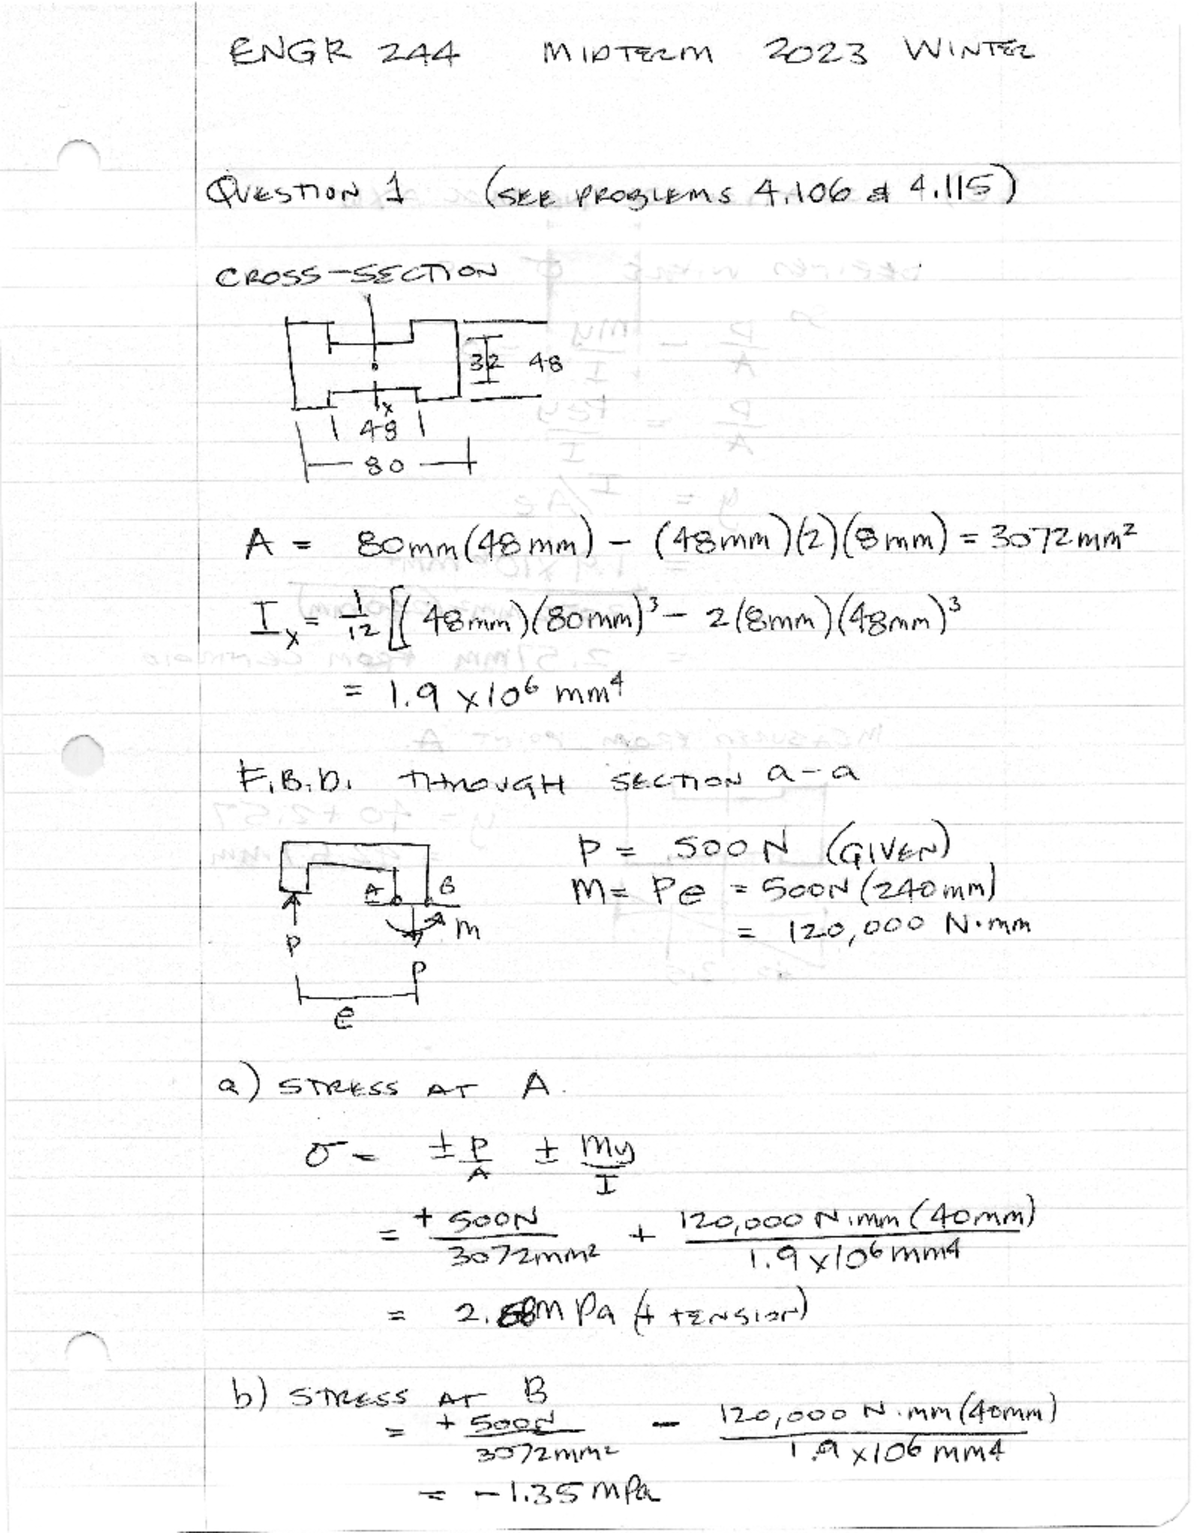 ENGR 244 MIDTERM 2023 WINTER
QUESTION 1 (SEE PROBLEMS 4.106 & 4.115)
CROSS-SECTION
32 48
x
48
80
A = 80mm(48mm) - (48mm)(2)(8mm) = 3072mm²
Ix = 1/12 [(48mm)(80mm)³ - 2(8mm)(48mm)³
= 1.9 x10⁶ mm⁴
F.B.D. THROUGH SECTION a-a
P = 500N (GIVEN)
M = Pe = 500N(240mm)
= 120,000 N·mm
A B
M
P
P
e
a) STRESS AT A.
σ = ± P/A ± My/I
= + 500N/3072mm² + 120,000 N.mm (40mm)/1.9 x10⁶mm4
= 2.68MPa (+ TENSION)
b) STRESS AT B
= + 500N/3072mm² - 120,000 N.mm (40mm)/1.9 x106 mm4
= -1.35 MPa